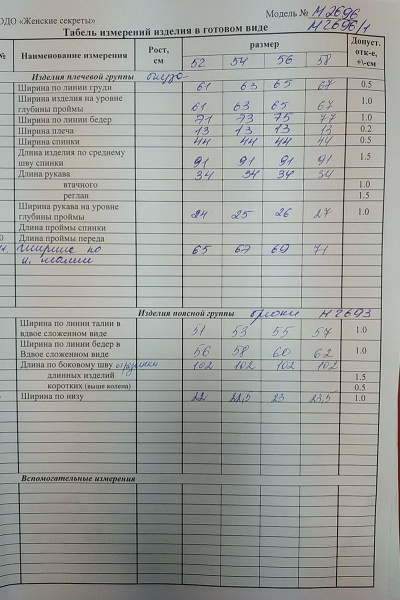 ОДО «Женские секреты»
Модель № М 2696
Табель измерений изделия в готовом виде М 2696/1
№ Наименование измерения Рост, см размер Допуст. отк-е, +\-см
52 54 56 58
Изделия плечевой группы блуза
Ширина по линии груди 61 63 65 67 0.5
Ширина изделия на уровне
глубины проймы 61 63 65 67 1.0
Ширина по линии бедер 71 73 75 77 1.0
Ширина плеча 13 13 13 13 0.2
Ширина спинки 44 44 44 44 0.5
Длина изделия по среднему
шву спинки 91 91 91 91 1.5
Длина рукава 34 34 34 34
втачного 1.0
реглан 1.5
Ширина рукава на уровне
глубины проймы 24 25 26 27 1.0
Длина проймы спинки
0 Длина проймы переда
ширина по 65 67 69 71
л. талии
Изделия поясной группы брюки М 2693
Ширина по линии талии в
вдвое сложенном виде 51 53 55 57 1.0
Ширина по линии бедер в
Вдвое сложенном виде 56 58 60 62 1.0
Длина по боковому шву 102 102 102 102
длинных изделий 1.5
коротких (выше колена) 0.5
Ширина по низу 22 22,5 23 23,5 1.0
Вспомогательные измерения